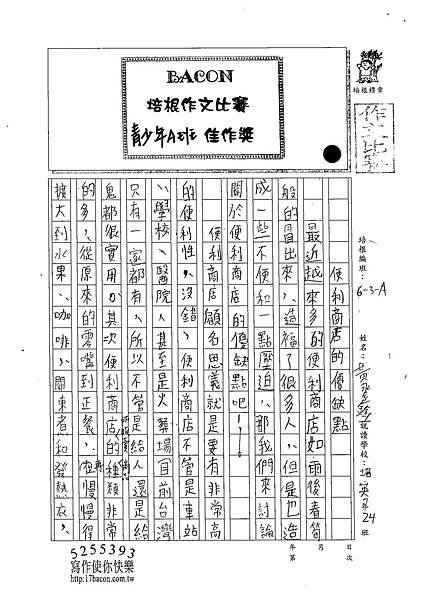 BACON
培根作文比賽
青少年A班 佳作獎
培根標章
作文比賽
培根編班：6-3-A
姓名：黃
就讀學校：培英 7年 24班
便利商店的優缺點
最近越來越多的便利商店如雨後春筍
般的冒出來，造福了很多人，但是也造
成一些不便和一點壓迫，那我們來討論
關於便利商店的優缺點吧！
便利商店顧名思義就是要有非常高
的便利性，沒錯，便利商店不管是車站
、學校、醫院、甚至是火葬場，目前台灣
只有一家都有，所以不管是給人還是給
鬼都很實用。其次便利商店的種類非常
的多，從原來的零嘴到正餐，在慢慢得
擴大到水果、咖啡、關東煮和發熱衣，
年 月 日
第 次
5255393
寫作使你快樂
http://17bacon.com.tw